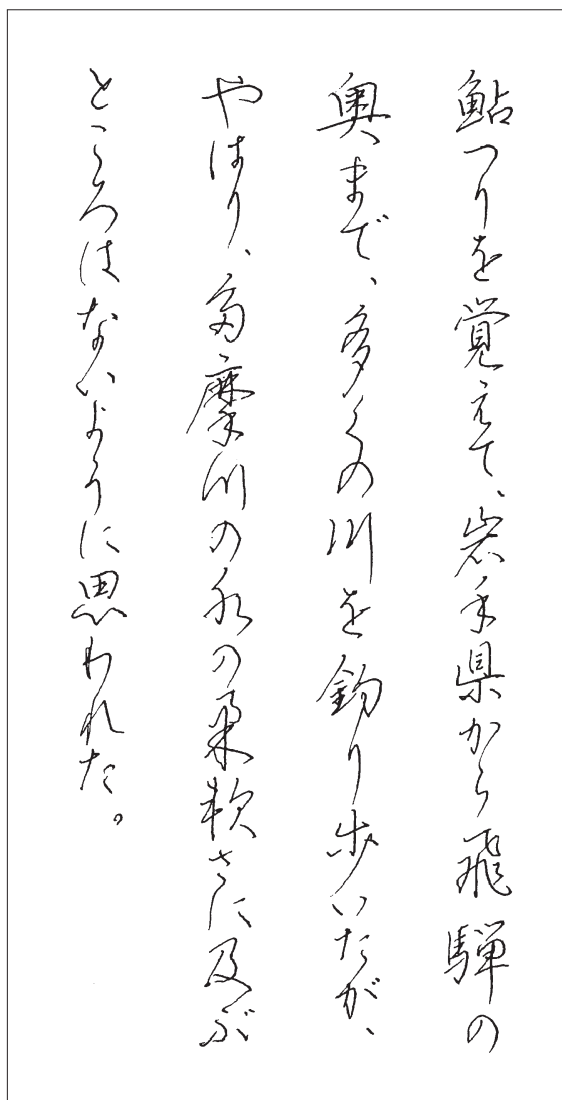 鮎つりを覚えて、岩手県から飛騨の
奥まで、多くの川を釣り歩いたが、
やはり、多摩川の水の柔軟さに及ぶ
ところはないように思われた。